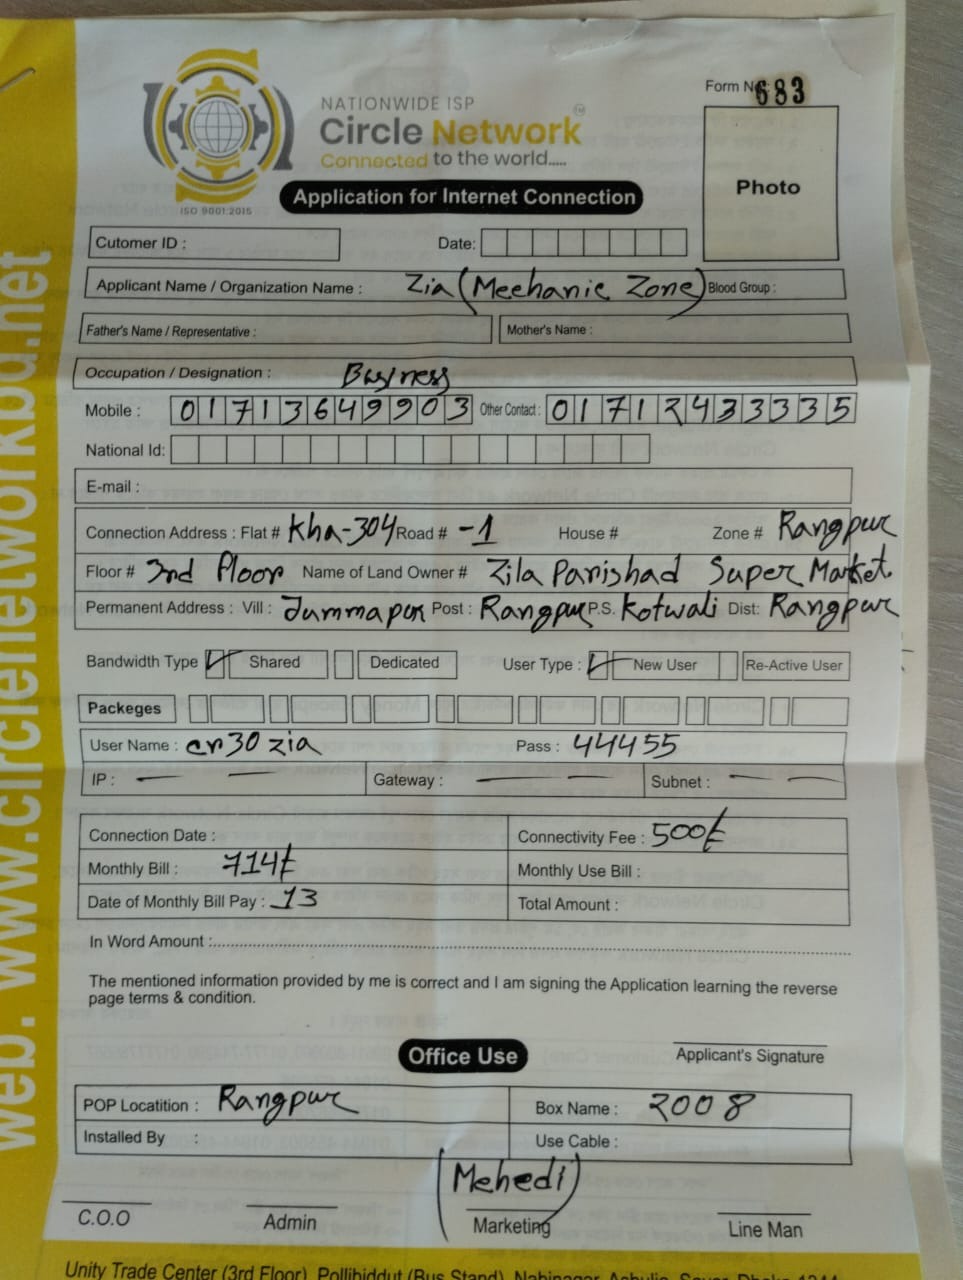 Form No 683
NATIONWIDE ISP
Circle Network TM
Connected to the world.....
ISO 9001:2015
Application for Internet Connection
Photo
Cutomer ID :
Date:
Applicant Name / Organization Name : Zia (Mechanic Zone) Blood Group :
Father's Name / Representative :
Mother's Name :
Occupation / Designation : Business
Mobile : 01713649903 Other Contact : 01712433335
National Id:
E-mail :
Connection Address : Flat # Kha-304 Road # -1 House # Zone # Rangpur
Floor # 3rd Floor Name of Land Owner # Zila Parishad Super Market.
Permanent Address : Vill : Jummapur Post : Rangpur P.S. Kotwali Dist: Rangpur
Bandwidth Type ✓ Shared Dedicated User Type : ✓ New User Re-Active User
Packeges
User Name : cn30 zia Pass : 44455
IP : — — Gateway : — — Subnet : — —
Connection Date : Connectivity Fee : 500/-
Monthly Bill : 714/- Monthly Use Bill :
Date of Monthly Bill Pay : 13 Total Amount :
In Word Amount :
The mentioned information provided by me is correct and I am signing the Application learning the reverse
page terms & condition.
Office Use
Applicant's Signature
POP Locatition : Rangpur Box Name : 2008
Installed By : Use Cable :
(Mehedi)
C.O.O Admin Marketing Line Man
Unity Trade Center (3rd Floor), Pollibiddut (Bus Stand), Nabinagar, Ashulia, Savar, Dhaka-1344
web: www.circlenetworkbd.net